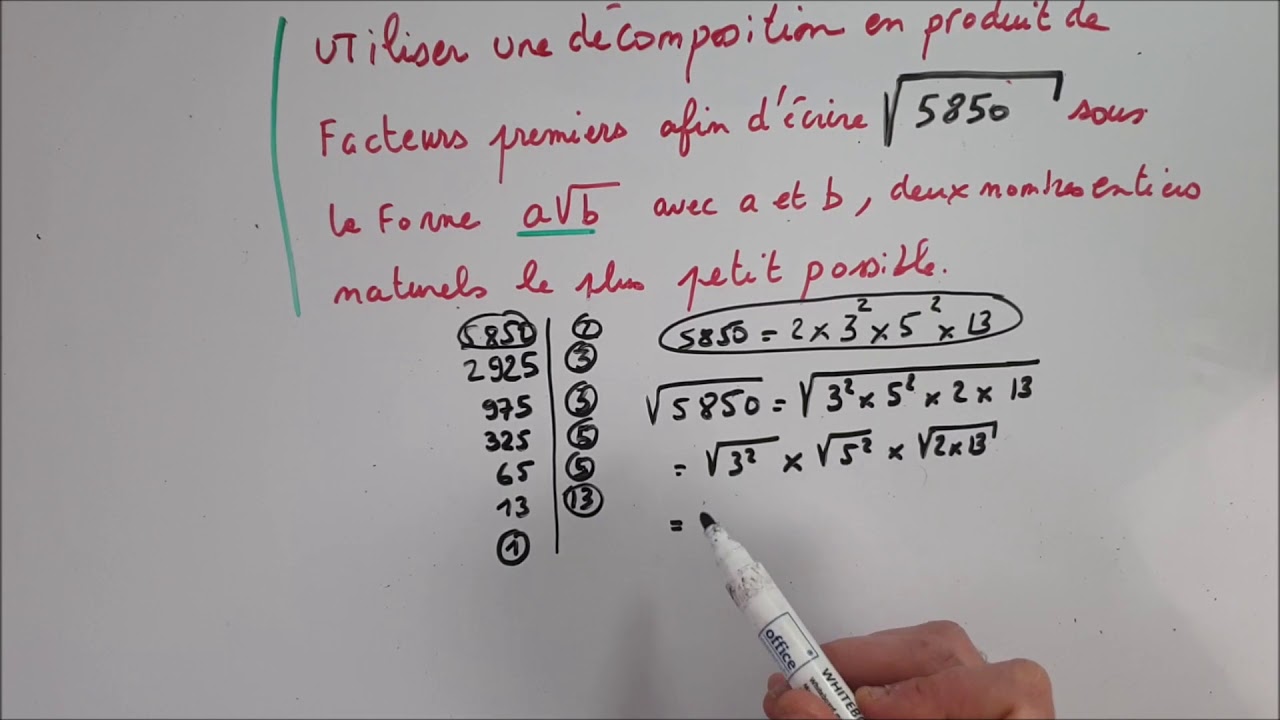 UTiliser une décomposition en produit de
Facteurs premiers afin d'écrire √5850 sous
la Forme a√b avec a et b, deux nombres entiers
naturels le plus petit possible.
5850 | 2
2925 | 3
975 | 3
325 | 5
65 | 5
13 | 13
1
5850 = 2 × 3² × 5² × 13
√5850 = √3² × 5² × 2 × 13
= √3² × √5² × √2×13
=
office
WHITEB